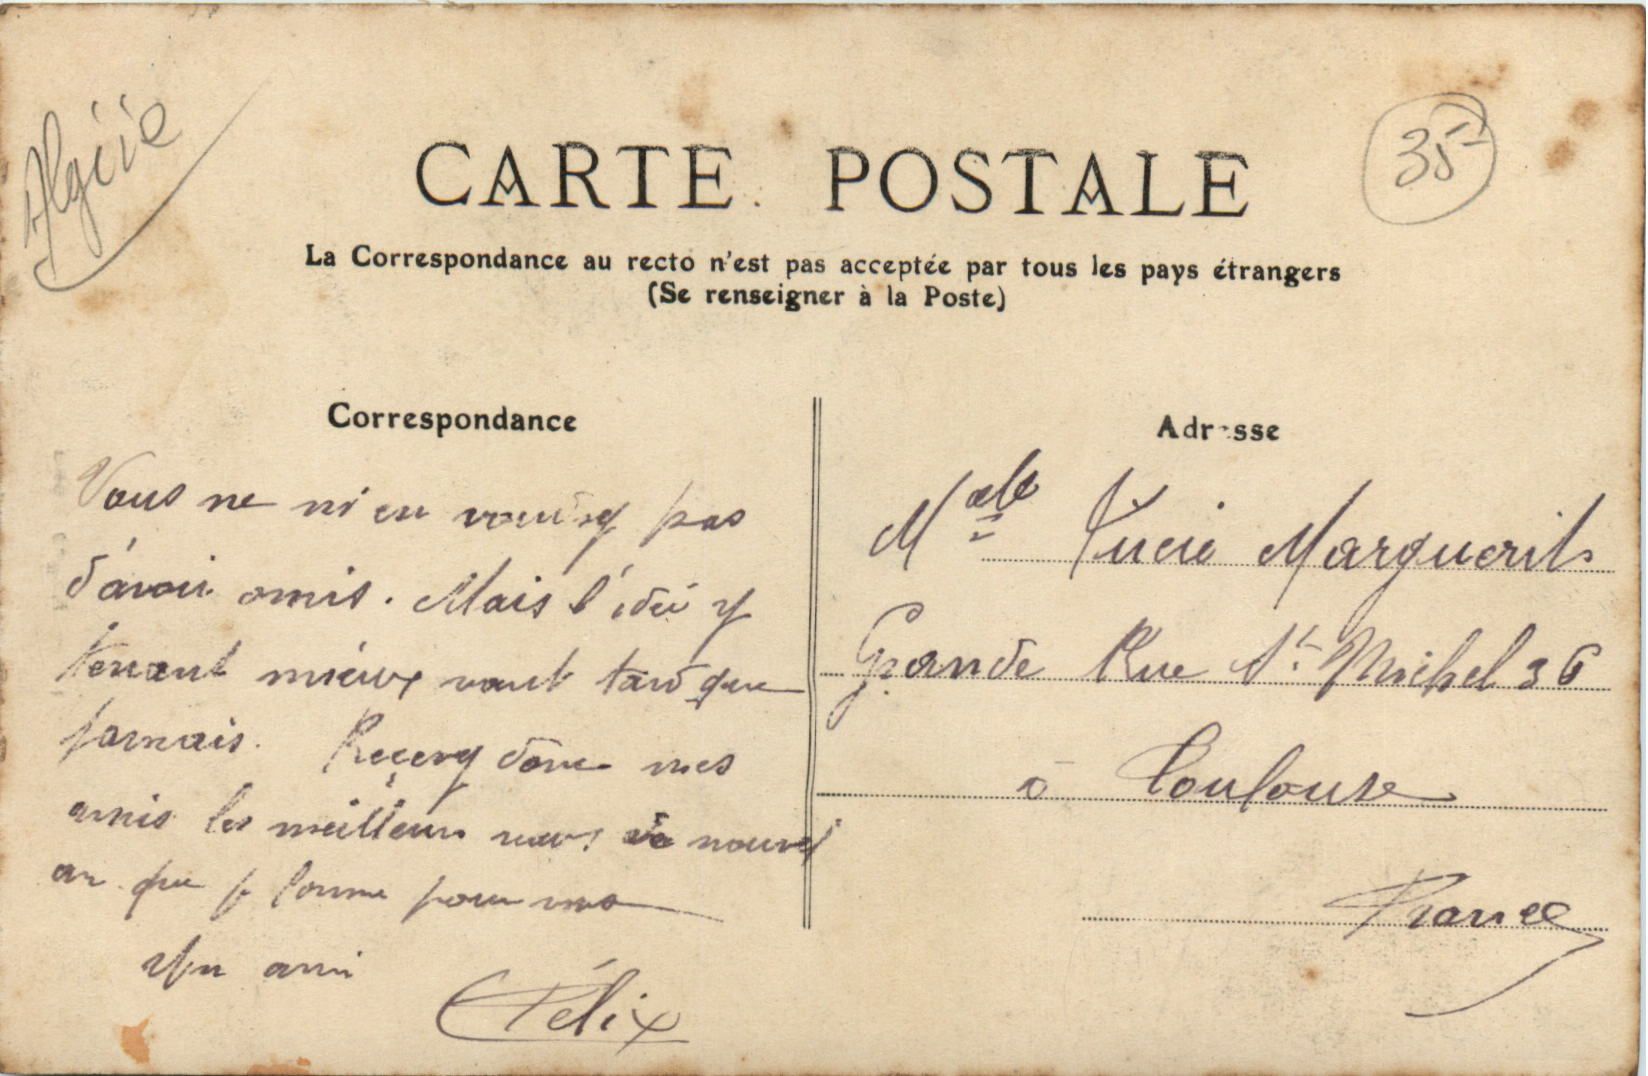 Algérie
35
CARTE POSTALE
La Correspondance au recto n'est pas acceptée par tous les pays étrangers
(Se renseigner à la Poste)
Correspondance
Vous ne m'en voudrez pas
d'avoir omis. Mais l'idée y
tenant mieux vaut tard que
jamais. Reçevez donc mes
amis les meilleurs vœux de nouvel
an que je forme pour vous
Un ami
Félix
Adresse
Mdlle Lucie Marguerit
Grande Rue St Michel 36
à Toulouse
France